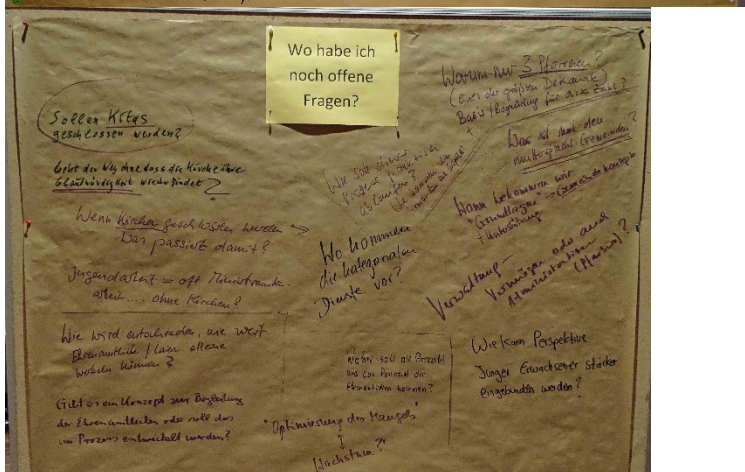 Wo habe ich
noch offene
Fragen?
Sollen Kitas
geschlossen werden?
Geht der Weg ohne dass die Kirche ihre
Glaubwürdigkeit wieder findet?
Wenn Kirchen geschlossen werden →
Was passiert damit?
Jugendarbeit = oft Ministranten
arbeit.... ohne Kirchen?
Wie wird entschieden, wie weit
Ehrenamtliche / Laien
können?
Gibt es ein Konzept zur Begleitung
der Ehrenamtlichen oder soll das
im Prozess entwickelt werden?
Wie soll dieser
ablaufen?
Wo kommen
die kategorialen
Dienste vor?
Woher soll die Anzahl
und das Potential der
Ehrenamtlichen kommen?
"Optimierung des Mangels"
↓
Wachstum?
Warum nur 3 Pfarreien?
(Eines der größten Dekanate)
Basis / Begründung für diese Zahl?
Was ist mit den
muttersprachl. Gemeinden?
Wann bekommen wir
"Grundlagen" → Gemeindekonzepte
+ Unterstützung
Verwaltung –
Vermögen oder auch
Administration?
Wie kann Perspektive
Junger Erwachsener stärker
eingebunden werden?